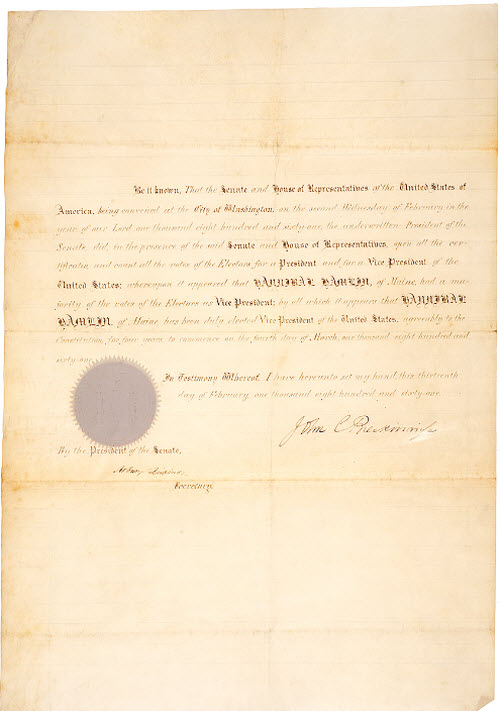 Be it known, That the Senate and House of Representatives of the United States of
America, being convened at the City of Washington, on the second Wednesday of February in the
year of our Lord one thousand eight hundred and sixty-one, the underwritten President of the
Senate did, in the presence of the said Senate and House of Representatives, open all the cer-
tificates and count all the votes of the Electors for a President and for a Vice President of the
United States; whereupon it appeared that HANNIBAL HAMLIN, of Maine, had a ma-
jority of the votes of the Electors as Vice President; by all which it appears that HANNIBAL
HAMLIN, of Maine has been duly elected Vice President of the United States, agreeably to the
Constitution, for four years to commence on the fourth day of March, one thousand eight hundred and
sixty-one.
In Testimony Whereof, I have hereunto set my hand, this thirteenth
day of February, one thousand eight hundred and sixty-one.
John C. Breckinridge
By the President of the Senate,
Secretary